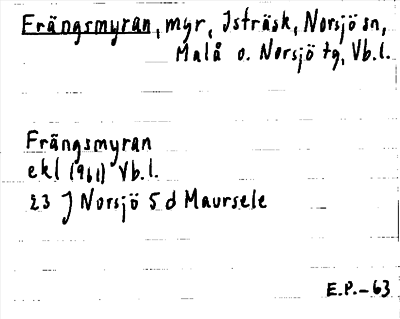 Frängsmyran, myr, Isträsk, Norsjö sn,
Malå o. Norsjö tg, Vb.l.
Frängsmyran
ekl (1961) Vb.l.
23 J Norsjö 5 d Maursele
E.P.-63